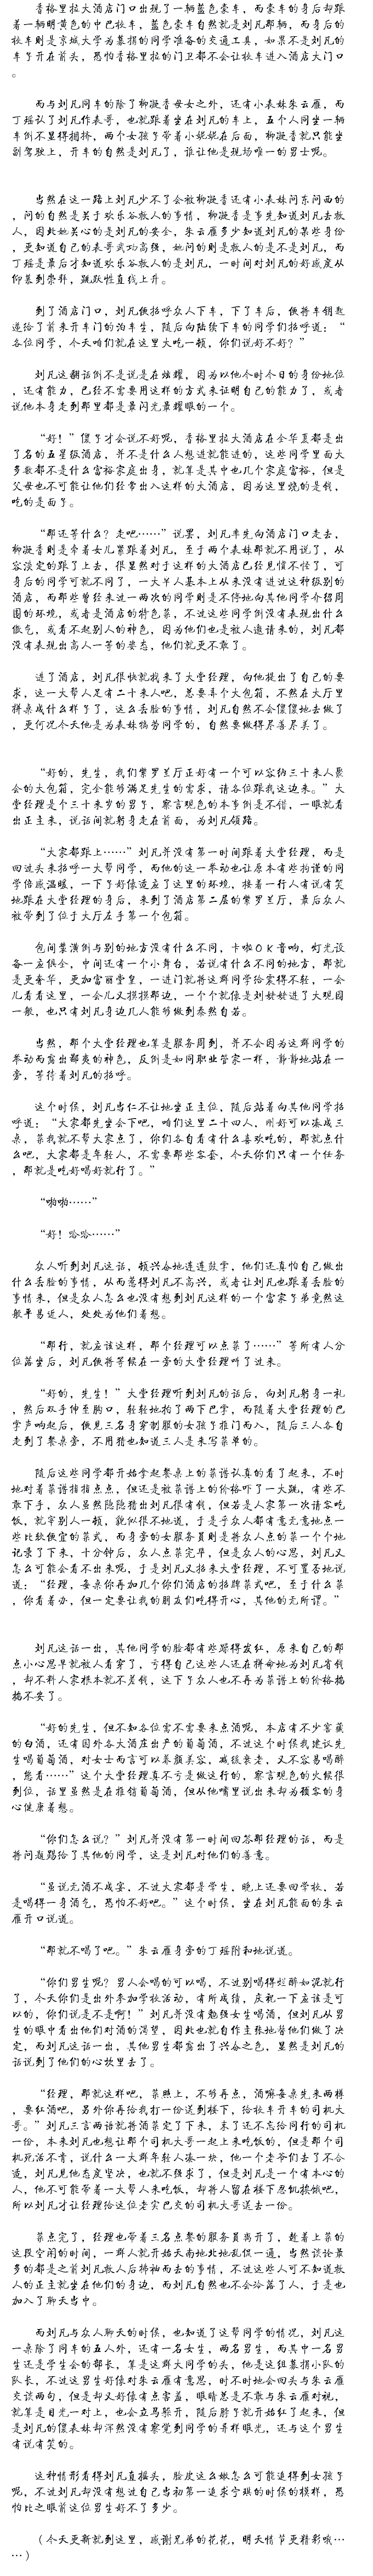 香格里拉大酒店门口出现了一辆蓝色豪车，而豪车的身后却跟
着一辆明黄色的中巴校车，蓝色豪车自然就是刘凡那辆，而身后的
校车则是京城大学为募捐的同学准备的交通工具，如果不是刘凡的
车子开在前头，恐怕香格里拉的门卫都不会让校车进入酒店大门口
。
而与刘凡同车的除了柳凝香母女之外，还有小表妹朱云雁，而
丁瑶认了刘凡作表哥，也就跟着坐在刘凡的车上，五个人同坐一辆
车倒不显得拥挤，两个女孩子带着小妮妮在后面，柳凝香就只能坐
副驾驶上，开车的自然是刘凡了，谁让他是现场唯一的男士呢。
当然在这一路上刘凡少不了会被柳凝香还有小表妹问东问西的
，问的自然是关于欢乐谷救人的事情，柳凝香是事先知道刘凡去救
人，因此她关心的是刘凡的安全，朱云雁多少知道刘凡的某些身份
，更知道自己的表哥武功高强，她问的则是救人的是不是刘凡，而
丁瑶是最后才知道欢乐谷救人的是刘凡，一时间对刘凡的好感度从
仰慕到崇拜，跳跃性直线上升。
到了酒店门口，刘凡便招呼众人下车，下了车后，便将车钥匙
递给了前来开车门的泊车生，随后向陆续下车的同学们招呼道：“
各位同学，今天咱们就在这里大吃一顿，你们说好不好？”
刘凡这翻话倒不是说是在炫耀，因为以他今时今日的身份地位
，还有能力，已经不需要用这样的方式来证明自己的能力了，或者
说他本身走到那里都是最闪光最耀眼的一个。
“好！”傻子才会说不好呢，香格里拉大酒店在全华夏都是出
了名的五星级酒店，并不是什么人想进就能进的，这些同学里面大
多数都不是什么富裕家庭出身，就算是其中也几个家庭富裕，但是
父母也不可能让他们经常出入这样的大酒店，因为这里烧的是钱，
吃的是面子。
“那还等什么？走吧……”说罢，刘凡率先向酒店门口走去，
柳凝香则是牵着女儿紧跟着刘凡，至于两个表妹那就不用说了，从
容淡定的跟了上去，很显然对于这样的大酒店已经见惯不怪了，可
身后的同学可就不同了，一大半人基本上从来没有进过这种级别的
酒店，而那些曾经来过一两次的同学则是不停地向其他同学介绍周
围的环境，或者是酒店的特色菜，不过这些同学倒没有表现出什么
傲气，或看不起别人的神色，因为他们也是被人邀请来的，刘凡都
没有表现出高人一等的姿态，他们就更不敢了。
进了酒店，刘凡很快就找来了大堂经理，向他提出了自己的要
求，这一大帮人足有二十来人吧，总要弄个大包箱，不然在大厅里
拼桌成什么样子了，这么丢脸的事情，刘凡自然不会傻傻地去做了
，更何况今天他是为表妹犒劳同学的，自然要做得尽善尽美了。
“好的，先生，我们紫罗兰厅正好有一个可以容纳三十来人聚
会的大包箱，完全能够满足先生的需求，请各位跟我这边来。”大
堂经理是个三十来岁的男子，察言观色的本事倒是不错，一眼就看
出正主来，说话间就躬身走在前面，为刘凡领路。
“大家都跟上……”刘凡并没有第一时间跟着大堂经理，而是
回过头来招呼一大帮同学，而他的这一举动也让原本有些拘谨的同
学倍感温暖，一下子好像适应了这里的环境，接着一行人有说有笑
地跟在大堂经理的身后，来到了酒店第二层的紫罗兰厅，最后众人
被带到了位于大厅左手第一个包箱。
包间装潢倒与别的地方没有什么不同，卡啦ＯＫ音响，灯光设
备一应俱全，中间还有一个小舞台，若说有什么不同的地方，那就
是更奢华，更加富丽堂皇，一进门就将这群同学给震得不轻，一会
儿看看这里，一会儿又摸摸那边，一个个就像是刘姥姥进了大观园
一般，也只有刘凡身边几人能够做到泰然自若。
当然，那个大堂经理也算是服务周到，并不会因为这群同学的
举动而露出鄙夷的神色，反倒是如同职业管家一样，静静地站在一
旁，等待着刘凡的招呼。
这个时候，刘凡当仁不让地坐正主位，随后站着向其他同学招
呼道：“大家都先坐会下吧，咱们这里二十四人，刚好可以凑成三
桌，菜我就不帮大家点了，你们各自看有什么喜欢吃的，那就点什
么吧，大家都是年轻人，不需要那些客套，今天你们只有一个任务
，那就是吃好喝好就行了。”
“啪啪……”
“好！哈哈……”
众人听到刘凡这话，顿兴奋地连连鼓掌，他们还真怕自己做出
什么丢脸的事情，从而惹得刘凡不高兴，或者让刘凡也跟着丢脸的
事情来，但是众人怎么也没有想到刘凡这样的一个富家子弟竟然这
般平易近人，处处为他们着想。
“那行，就应该这样，那个经理可以点菜了……”等所有人分
位落坐后，刘凡便将等候在一旁的大堂经理听了过来。
“好的，先生！”大堂经理听到刘凡的话后，向刘凡躬身一礼
，然后双手伸至胸口，轻轻地拍了两下巴掌，而随着大堂经理的巴
掌声响起后，便见三名身穿制服的女孩子推门而入，随后三人各自
走到了餐桌旁，不用猜也知道三人是来写菜单的。
随后这些同学都开始拿起餐桌上的菜谱认真的看了起来，不时
地对着菜谱指指点点，但还是被菜谱上的价格吓了一大跳，有些不
敢下手，众人虽然隐隐猜出刘凡很有钱，但若是人家第一次请客吃
饭，就宰别人一顿，貌似很不地道，于是乎众人都有意无意地点一
些比较便宜的菜式，而身旁的女服务员则是将众人点的菜一个个地
记录了下来，十分钟后，众人点菜完毕，但是众人的心思，刘凡又
怎么可能会看不出来呢，于是刘凡又招来大堂经理，不可置否地说
道：“经理，每桌你再加几个你们酒店的招牌菜式吧，至于什么菜
，你看着办，但一定要让我的朋友们吃得开心，其他的无所谓。”
刘凡这话一出，其他同学的脸都有些臊得发红，原来自己的那
点小心思早就被人看穿了，亏得自己这些人还在拼命地为刘凡省钱
，却不料人家根本就不差钱，这下子众人也不再为菜谱上的价格惴
惴不安了。
“好的先生，但不知各位需不需要来点酒呢，本店有不少窖藏
的白酒，还有国外各大酒庄出产的葡萄酒，不过这个时候我建议先
生喝葡萄酒，对女士而言可以养颜美容，减缓衰老，又不容易喝醉
，您看……”这个大堂经理真不亏是做这行的，察言观色的火候很
到位，话里虽然是在推销葡萄酒，但从他嘴里说出来却为顾客的身
心健康着想。
“你们怎么说？”刘凡并没有第一时间回答那经理的话，而是
将问题踢给了其他的同学，这是刘凡对他们的善意。
“虽说无酒不成宴，不过大家都是学生，晚上还要回学校，若
是喝得一身酒气，恐怕不好吧。”这个时候，坐在刘凡能面的朱云
雁开口说道。
“那就不喝了吧。”朱云雁身旁的丁瑶附和地说道。
“你们男生呢？男人会喝的可以喝，不过别喝得烂醉如泥就行
了，今天你们是出外参加学校活动，有所成绩，庆祝一下应该是可
以的，你们说是不是啊！”刘凡并没有勉强女生喝酒，但刘凡从男
生的眼中看出他们对酒的渴望，因此也就自作主张地替他们做了决
定，而刘凡这话一出，其他男生都露出了兴奋之色，显然是刘凡的
话说到了他们的心坎里去了。
“经理，那就这样吧，菜照上，不够再点，酒嘛每桌先来两樽
，要红酒吧，另外你再给我打一份送到楼下，给校车开车的司机大
哥。”刘凡三言两语就将酒菜定了下来，末了还不忘给同行的司机
一份，本来刘凡也想让那个司机大哥一起上来吃饭的，但是那个司
机死活不肯，说什么一大群年轻人凑一块，他一个老爷们去了不合
适，刘凡见他态度坚决，也就不强求了，但是刘凡是一个有本心的
人，他不可能带着一大帮人来吃饭，却将人留在楼下忍饥挨饿吧，
所以刘凡才让经理给这位老实巴交的司机大哥送去一份。
菜点完了，经理也带着三名点餐的服务员离开了，趁着上菜的
这段空闲的时间，一群人就开始天南地北地乱侃一通，当然谈论最
多的都是之前刘凡救人后拂袖而去的事情，不过这些人可不知道救
人的正主就坐在他们的身边，而刘凡自然也不会冷落了人，于是也
加入了聊天当中。
而刘凡与众人聊天的时候，也知道了这帮同学的情况，刘凡这
一桌除了同车的五人外，还有一名女生，两名男生，而其中一名男
生还是学生会的部长，算是这群大同学的头，他是这组募捐小队的
队长，不过这男生好像对朱云雁有意思，时不时地会回头与朱云雁
交谈两句，但是却又好像有点害羞，眼睛总是不敢与朱云雁对视，
就算是目光一对上，也会立马躲开，随后脖子就开始红了起来，但
是刘凡的傻表妹却浑然没有察觉到同学的异样眼光，还与这个男生
有说有笑的。
这种情形看得刘凡直摇头，脸皮这么嫩怎么可能追得到女孩子
呢，不过刘凡却没有想过自己当初第一追求宁琪的时候的模样，恐
怕比之眼前这位男生好不了多少。
（今天更新就到这里，感谢兄弟的花花，明天情节更精彩哦…
…）